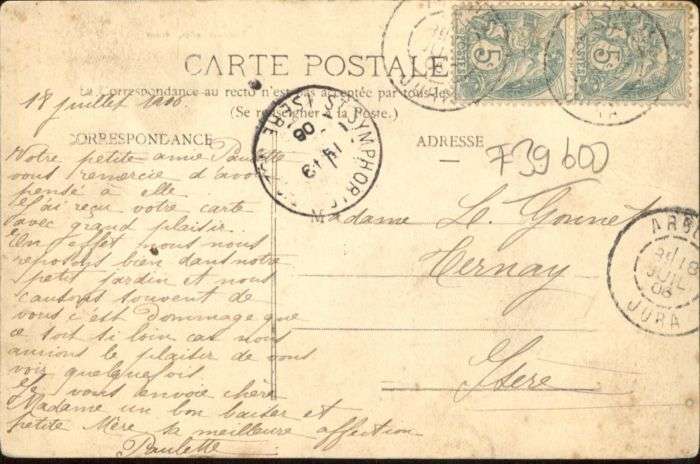 CARTE POSTALE
La Correspondance au recto n'est pas acceptée par tous les
(Se renseigner à la Poste.)
18 juillet 1906
CORRESPONDANCE
Notre petite amie Paulette
vous remercie d'avoir
pensé à elle
J'ai reçu votre carte
avec grand plaisir.
En effet nous nous
reposons bien dans notre
petit jardin et nous
causons souvent de
vous c'est dommage que
ce soit si loin car nous
aurions le plaisir de vous
voir quelquefois
Je vous envoie chère
Madame un bon baiser et
petite Mère sa meilleure affection
Paulette
ADRESSE
739600
Madame L. Gonnet
Ternay
Isère
ST SYMPHORIEN
ISERE
19
06
5
POSTES
5
POSTES
ARB
18
JUIL
06
JURA